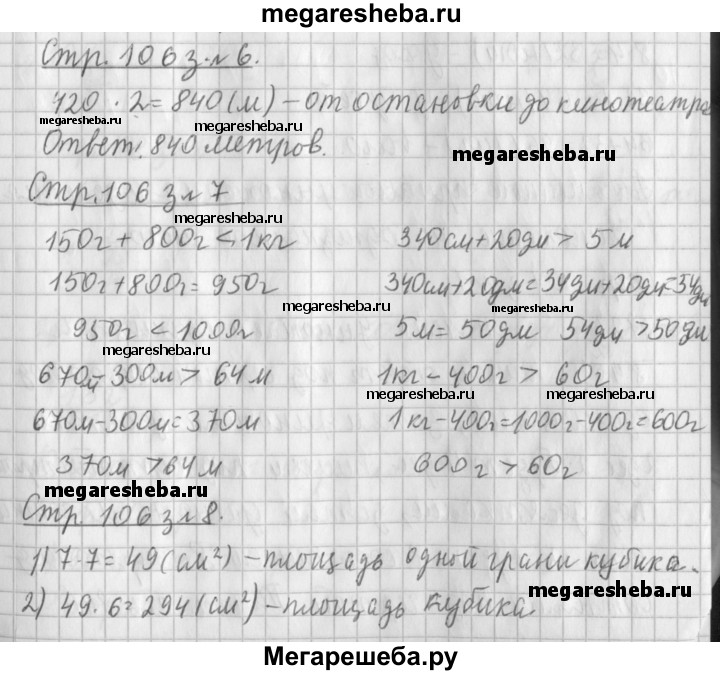 megaresheba.ru
Стр. 106 з.№6.
420 · 2 = 840 (м) – от остановки до кинотеатра
megaresheba.ru
megaresheba.ru
Ответ: 840 метров.
megaresheba.ru
Стр. 106 з№7
megaresheba.ru
150г + 800г < 1кг
340см+20дм > 5м
150г+800г = 950г
340см+20дм=34дм+20дм=54дм
megaresheba.ru
megaresheba.ru
950г < 1000г
5м = 50дм 54дм > 50дм
megaresheba.ru
670м – 300м > 64м
1кг – 400г > 60г
megaresheba.ru
megaresheba.ru
megaresheba.ru
670м–300м=370м
1кг–400г=1000г–400г=600г
370м > 64м
600г > 60г
megaresheba.ru
Стр. 106 з№8.
megaresheba.ru
1) 7·7=49 (см²) – площадь одной грани кубика.
2) 49·6=294 (см²) – площадь кубика
megaresheba.ru
Мегарешеба.ру